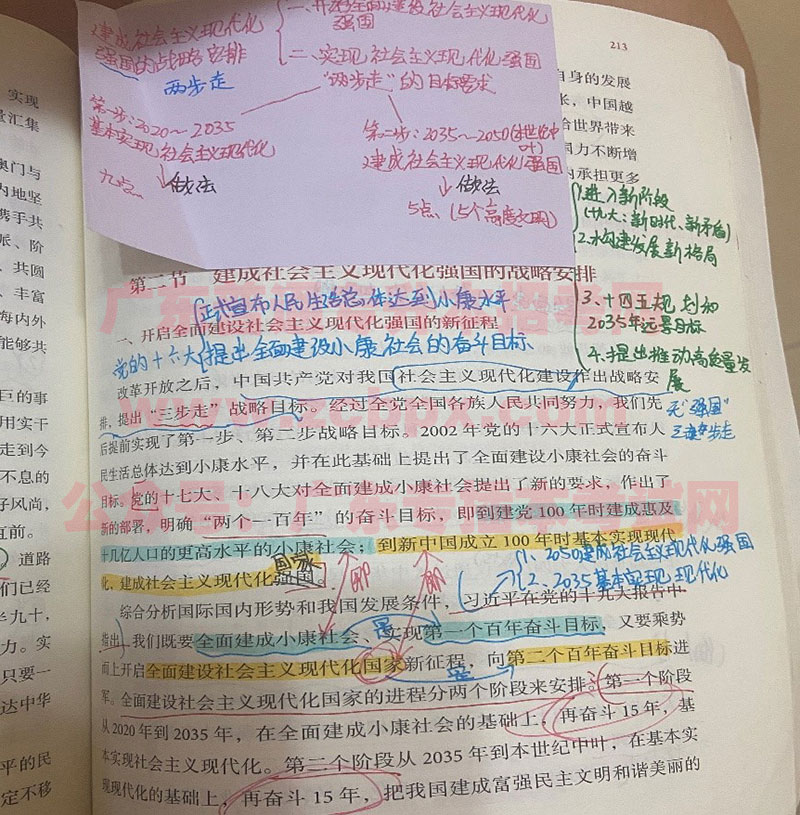 建成社会主义现代化
强国的战略安排
两步走
一、开启全面建设社会主义现代化
强国
二、实现社会主义现代化强国
“两步走”的目标要求
第一步:2020～2035
基本实现社会主义现代化
做法
九点
第二步:2035～2050(本世纪中
叶)
建成社会主义现代化强国
做法
5点 (5个高度文明)
213
实现
量汇集
澳门与
内地坚
携手共
派、阶
、共圆
、丰富
海内外
能够共
巨的事
用实干
走到今
不息的
好风尚,
直前。
道路
们已经
半九十,
力。实
只要一
达中华
平的民
定不移
自身的发展
长,中国越
给世界带来
国力不断增
内承担更多
1.进入新阶段
(十九大:新时代、新矛盾)
2.构建发展新格局
3.十四五规划和
2035年远景目标
4.提出推动高质量发
展
第二节 建成社会主义现代化强国的战略安排
正式宣布人民生活总体达到小康水平
一、开启全面建设社会主义现代化强国的新征程
党的十六大 提出全面建设小康社会的奋斗目标
改革开放之后,中国共产党对我国社会主义现代化建设作出战略安
排,提出“三步走”战略目标。经过全党全国各族人民共同努力,我们先
后提前实现了第一步、第二步战略目标。2002年党的十六大正式宣布人
民生活总体达到小康水平,并在此基础上提出了全面建设小康社会的奋斗
目标。党的十七大、十八大对全面建成小康社会提出了新的要求,作出了
新的部署,明确“两个一百年”的奋斗目标,即到建党100年时建成惠及
十几亿人口的更高水平的小康社会;到新中国成立100年时基本实现现代
化,建成社会主义现代化强国。
国家
1. 2050建成社会主义现代化强国
2. 2035基本实现现代化
综合分析国际国内形势和我国发展条件,习近平在党的十九大报告中
指出,我们既要全面建成小康社会、实现第一个百年奋斗目标,又要乘势
而上开启全面建设社会主义现代化国家新征程,向第二个百年奋斗目标进
军。全面建设社会主义现代化国家的进程分两个阶段来安排。第一个阶段
从2020年到2035年,在全面建成小康社会的基础上,再奋斗15年,基
本实现社会主义现代化。第二个阶段从2035年到本世纪中叶,在基本实
现现代化的基础上,再奋斗15年,把我国建成富强民主文明和谐美丽的